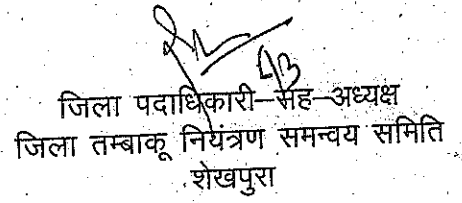 जिला पदाधिकारी–सह–अध्यक्ष
जिला तम्बाकू नियंत्रण समन्वय समिति
शेखपुरा